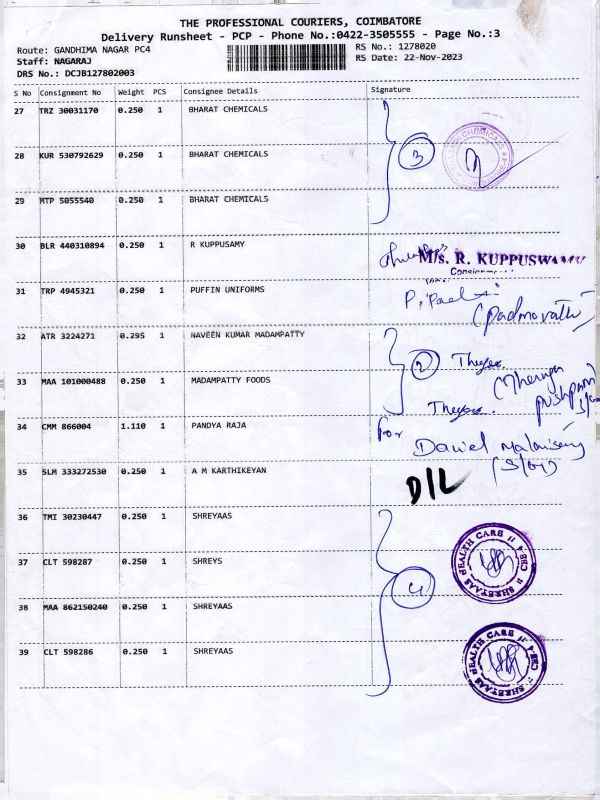 THE PROFESSIONAL COURIERS, COIMBATORE
Delivery Runsheet - PCP - Phone No.:0422-3505555 - Page No.:3
Route: GANDHIMA NAGAR PC4 RS No.: 1278020
Staff: NAGARAJ RS Date: 22-Nov-2023
DRS No.: DCJB127802003
S No Consignment No Weight PCS Consignee Details Signature
27 TRZ 30031170 0.250 1 BHARAT CHEMICALS
28 KUR 530792629 0.250 1 BHARAT CHEMICALS 3
29 MTP 5055540 0.250 1 BHARAT CHEMICALS
30 BLR 440310894 0.250 1 R KUPPUSAMY M/s. R. KUPPUSWAMY
31 TRP 4945321 0.250 1 PUFFIN UNIFORMS
(Padmavathi)
32 ATR 3224271 0.295 1 NAVEEN KUMAR MADAMPATTY 2
33 MAA 101000488 0.250 1 MADAMPATTY FOODS
34 CMM 866004 1.110 1 PANDYA RAJA For
Daniel
35 SLM 333272530 0.250 1 A M KARTHIKEYAN D/L
36 TMI 30230447 0.250 1 SHREYAAS
37 CLT 598287 0.250 1 SHREYS SHREYAAS HEALTH CARE CBE
38 MAA 862150240 0.250 1 SHREYAAS 4
39 CLT 598286 0.250 1 SHREYAAS SHREYAAS HEALTH CARE CBE